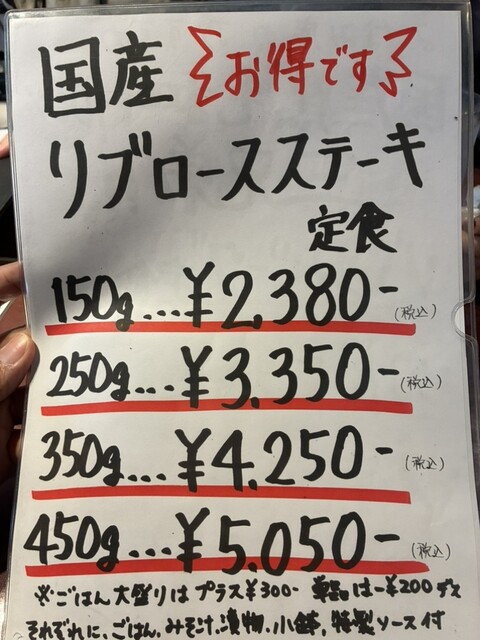 国産 お得です
リブロースステーキ
定食
150g...¥2,380-(税込)
250g...¥3,350-(税込)
350g...¥4,250-(税込)
450g...¥5,050-(税込)
※ごはん大盛りはプラス¥300- 単品は-¥200デス
それぞれに、ごはん、みそ汁、漬物、小鉢、特製ソース付